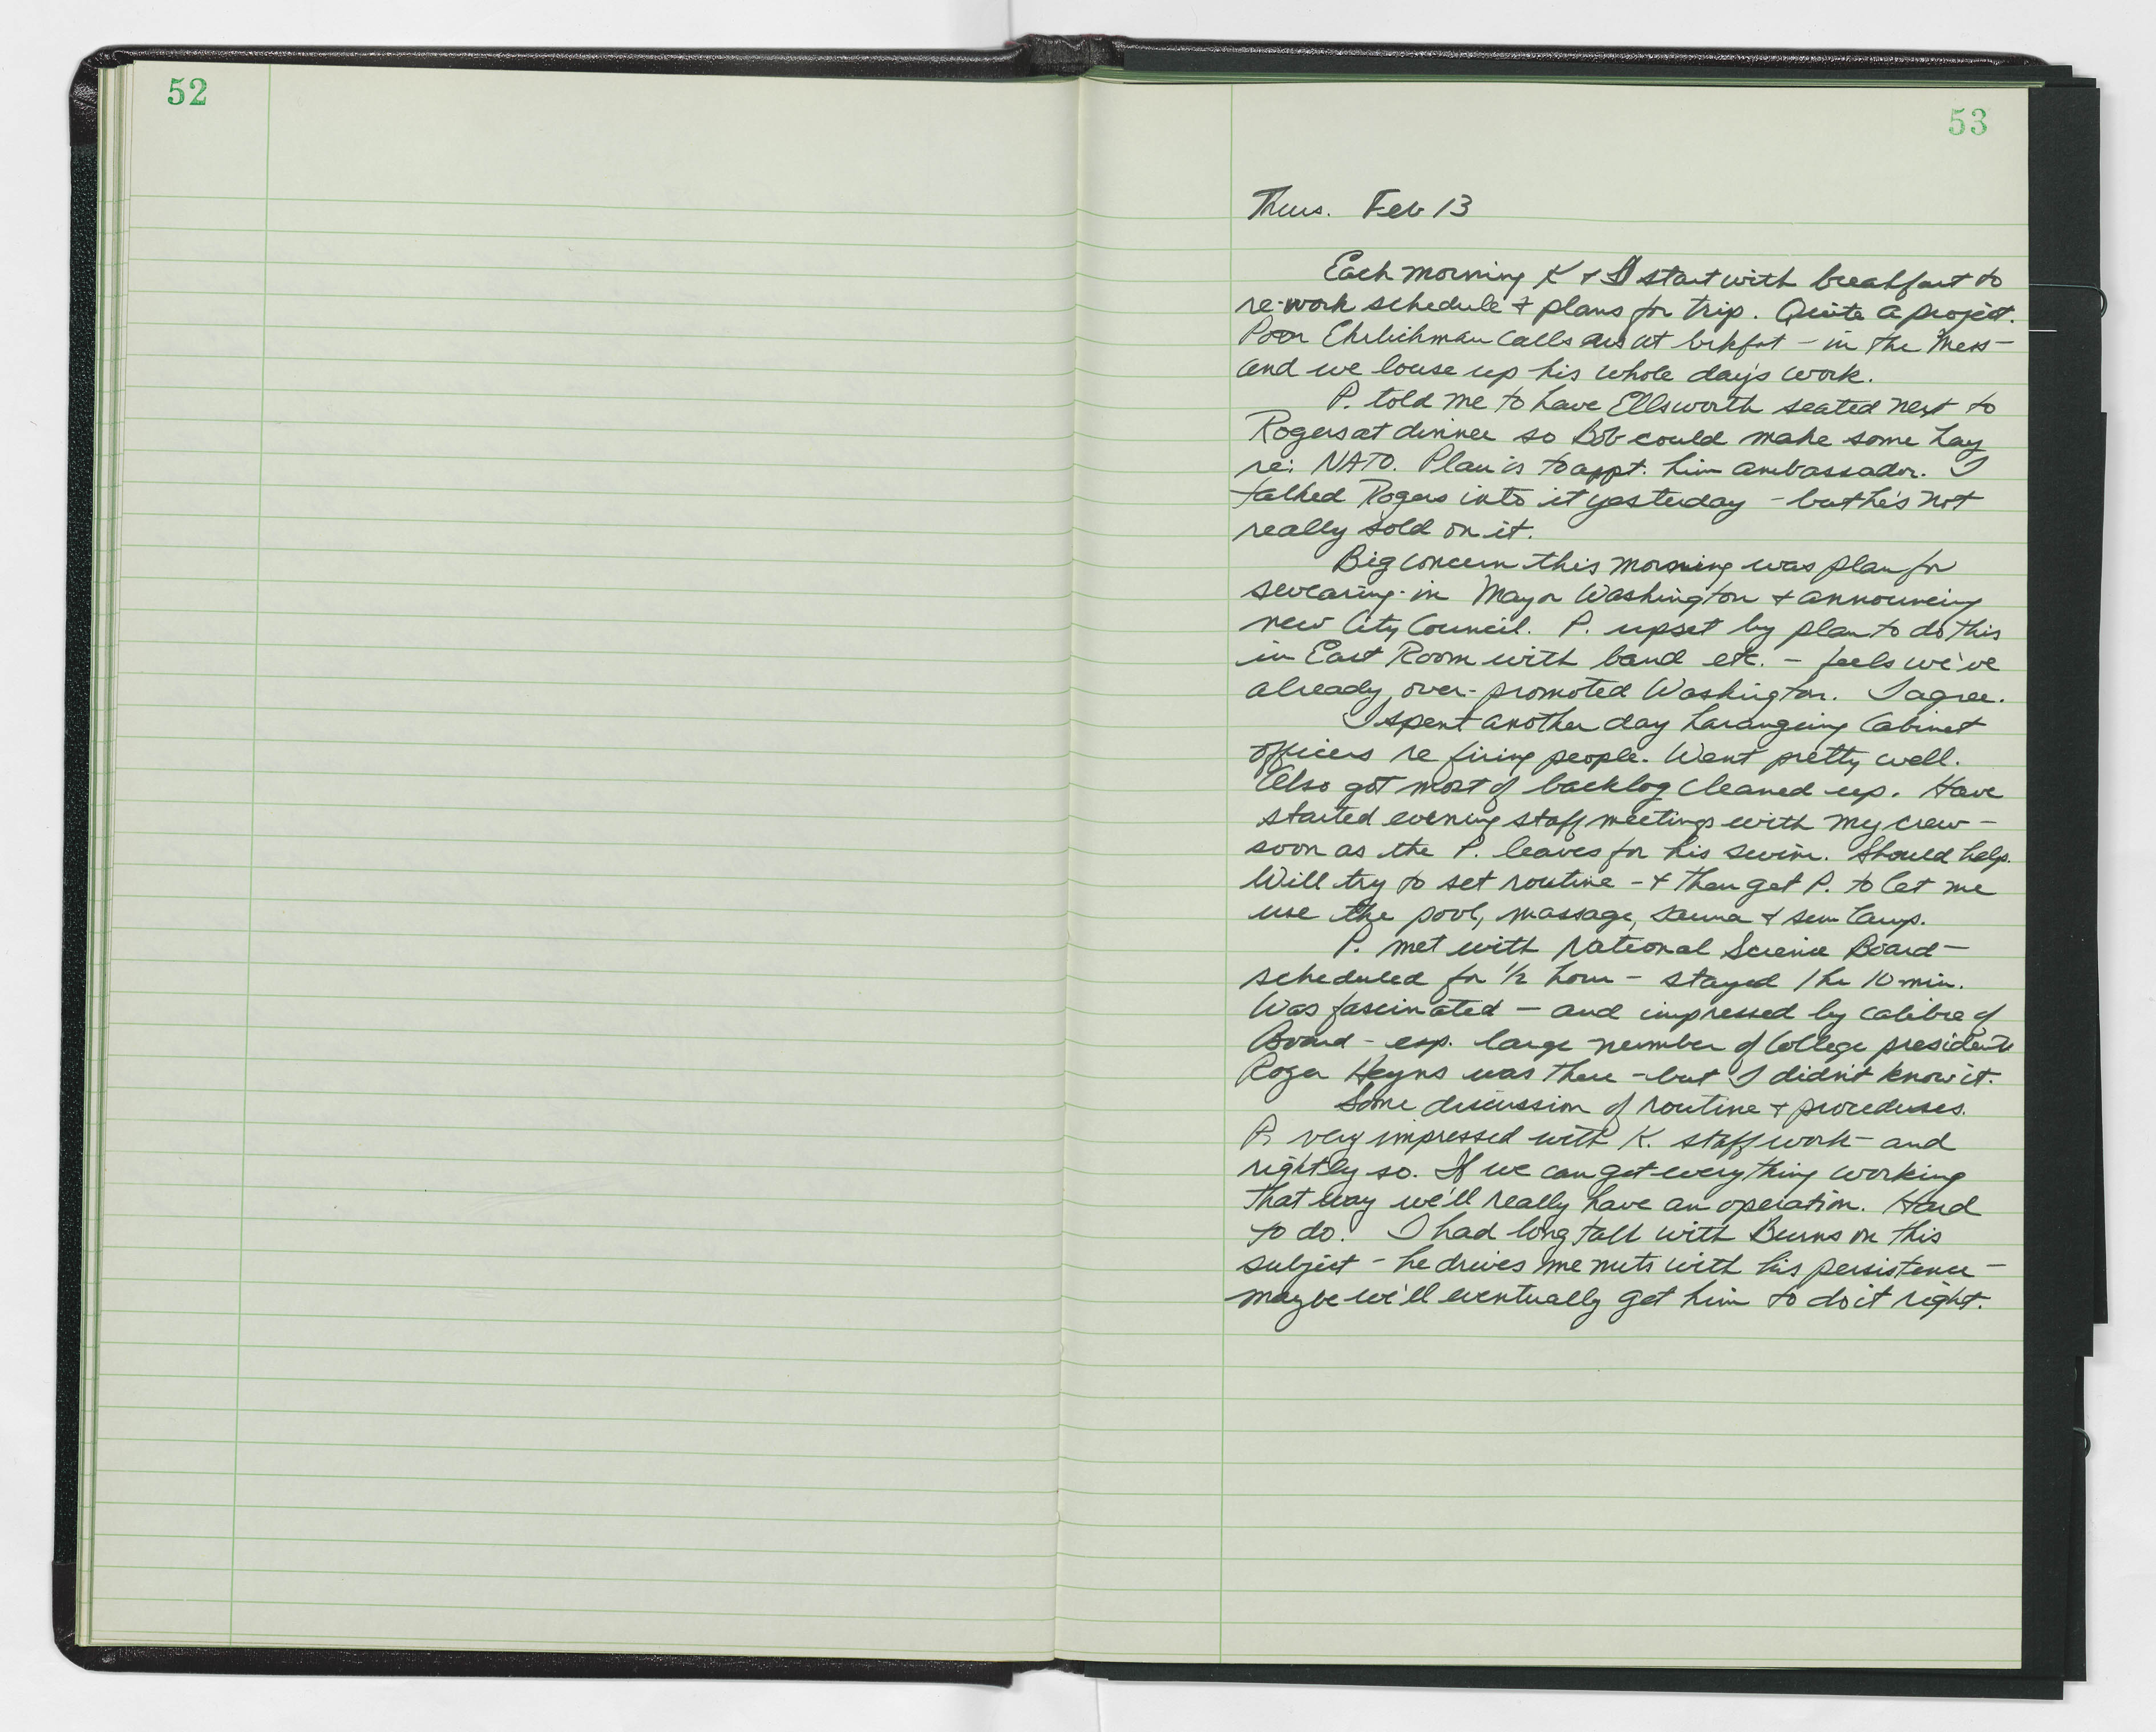 52
53
Thurs. Feb 13
Each morning K & I start with breakfast to
re-work schedule & plans for trip. Quite a project.
Poor Ehrlichman calls us at brkfst - in the Mess -
and we louse up his whole day's work.
P. told me to have Ellsworth seated next to
Rogers at dinner so Bob could make some hay
re: NATO. Plan is to appt. him ambassador. I
talked Rogers into it yesterday - but he's not
really sold on it.
Big concern this morning was plan for
swearing-in Mayor Washington & announcing
new City Council. P. upset by plan to do this
in East Room with band etc. - feels we've
already over-promoted Washington. I agree.
I spent another day harangeing Cabinet
officers re firing people. Went pretty well.
Also got most of backlog cleaned up. Have
started evening staff meetings with my crew -
soon as the P. leaves for his swim. Should help.
Will try to set routine - & then get P. to let me
use the pool, massage, sauna & sun lamp.
P. met with National Science Board -
scheduled for 1/2 hour - stayed 1 hr 10 min.
Was fascinated - and impressed by calibre of
Board - esp. large number of College presidents
Roger Heyns was there - but I didn't know it.
Some discussion of routine & procedures.
P. very impressed with K. staff work - and
rightly so. If we can get everything working
that way we'll really have an operation. Hard
to do. I had long talk with Burns on this
subject - he drives me nuts with his persistence -
maybe we'll eventually get him to do it right.